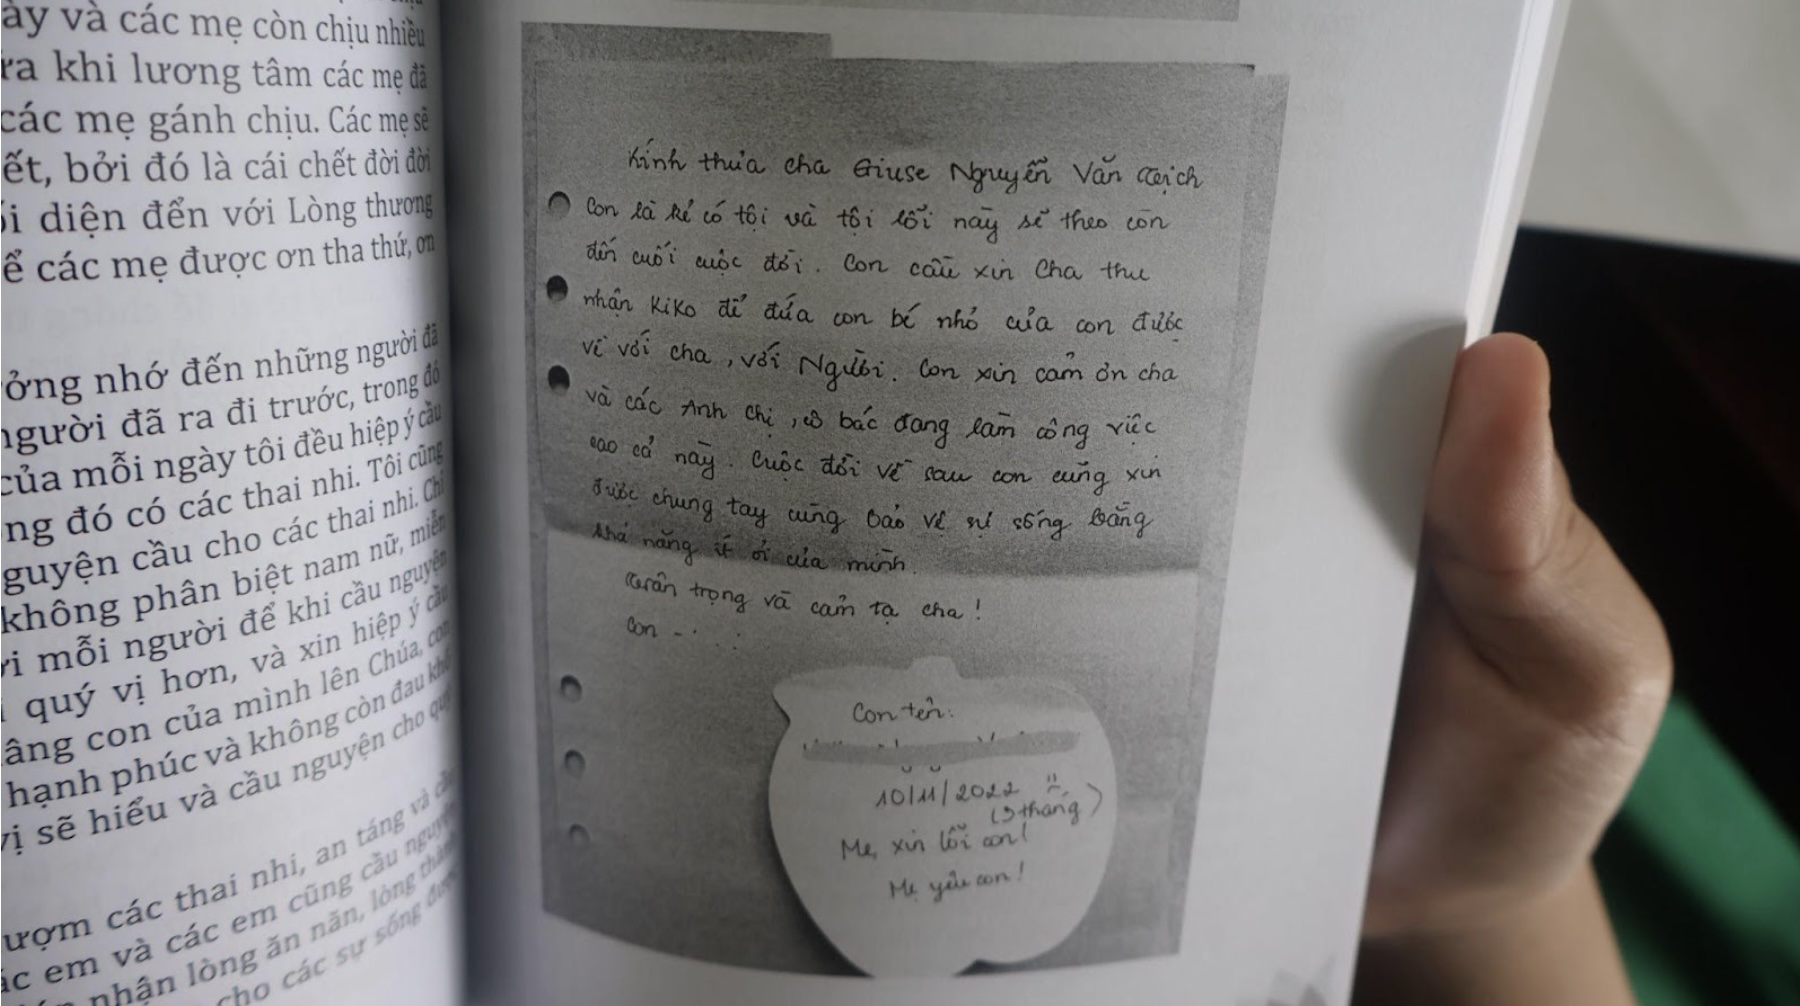 ày và các mẹ còn chịu nhiều
ra khi lương tâm các mẹ đã
các mẹ gánh chịu. Các mẹ sẽ
ết, bởi đó là cái chết đời đời
ối diện đến với Lòng thương
ể các mẹ được ơn tha thứ, ơn
ởng nhớ đến những người đã
người đã ra đi trước, trong đó
của mỗi ngày tôi đều hiệp ý cầu
ng đó có các thai nhi. Tôi cũng
guyện cầu cho các thai nhi. Chỉ
không phân biệt nam nữ, miễn
ới mỗi người để khi cầu nguyện
quý vị hơn, và xin hiệp ý cầu
âng con của mình lên Chúa, con
hạnh phúc và không còn đau khổ
vị sẽ hiểu và cầu nguyện cho quý
ượm các thai nhi, an táng và cầu
ác em và các em cũng cầu nguyện
nhận lòng ăn năn, lòng thành
cho các sự sống được
Kính thưa cha Giuse Nguyễn Văn Tịch
Con là kẻ có tội và tội lỗi này sẽ theo con
đến cuối cuộc đời. Con cầu xin Cha thu
nhận KiKo để đứa con bé nhỏ của con được
về với cha, với Người. Con xin cảm ơn cha
và các Anh chị, cô bác đang làm công việc
cao cả này. Cuộc đời về sau con cũng xin
được chung tay cùng bảo vệ sự sống bằng
khả năng ít ỏi của mình.
Trân trọng và cảm tạ cha!
Con
Con tên:
10/11/2022
(3 tháng)
Mẹ xin lỗi con!
Mẹ yêu con!